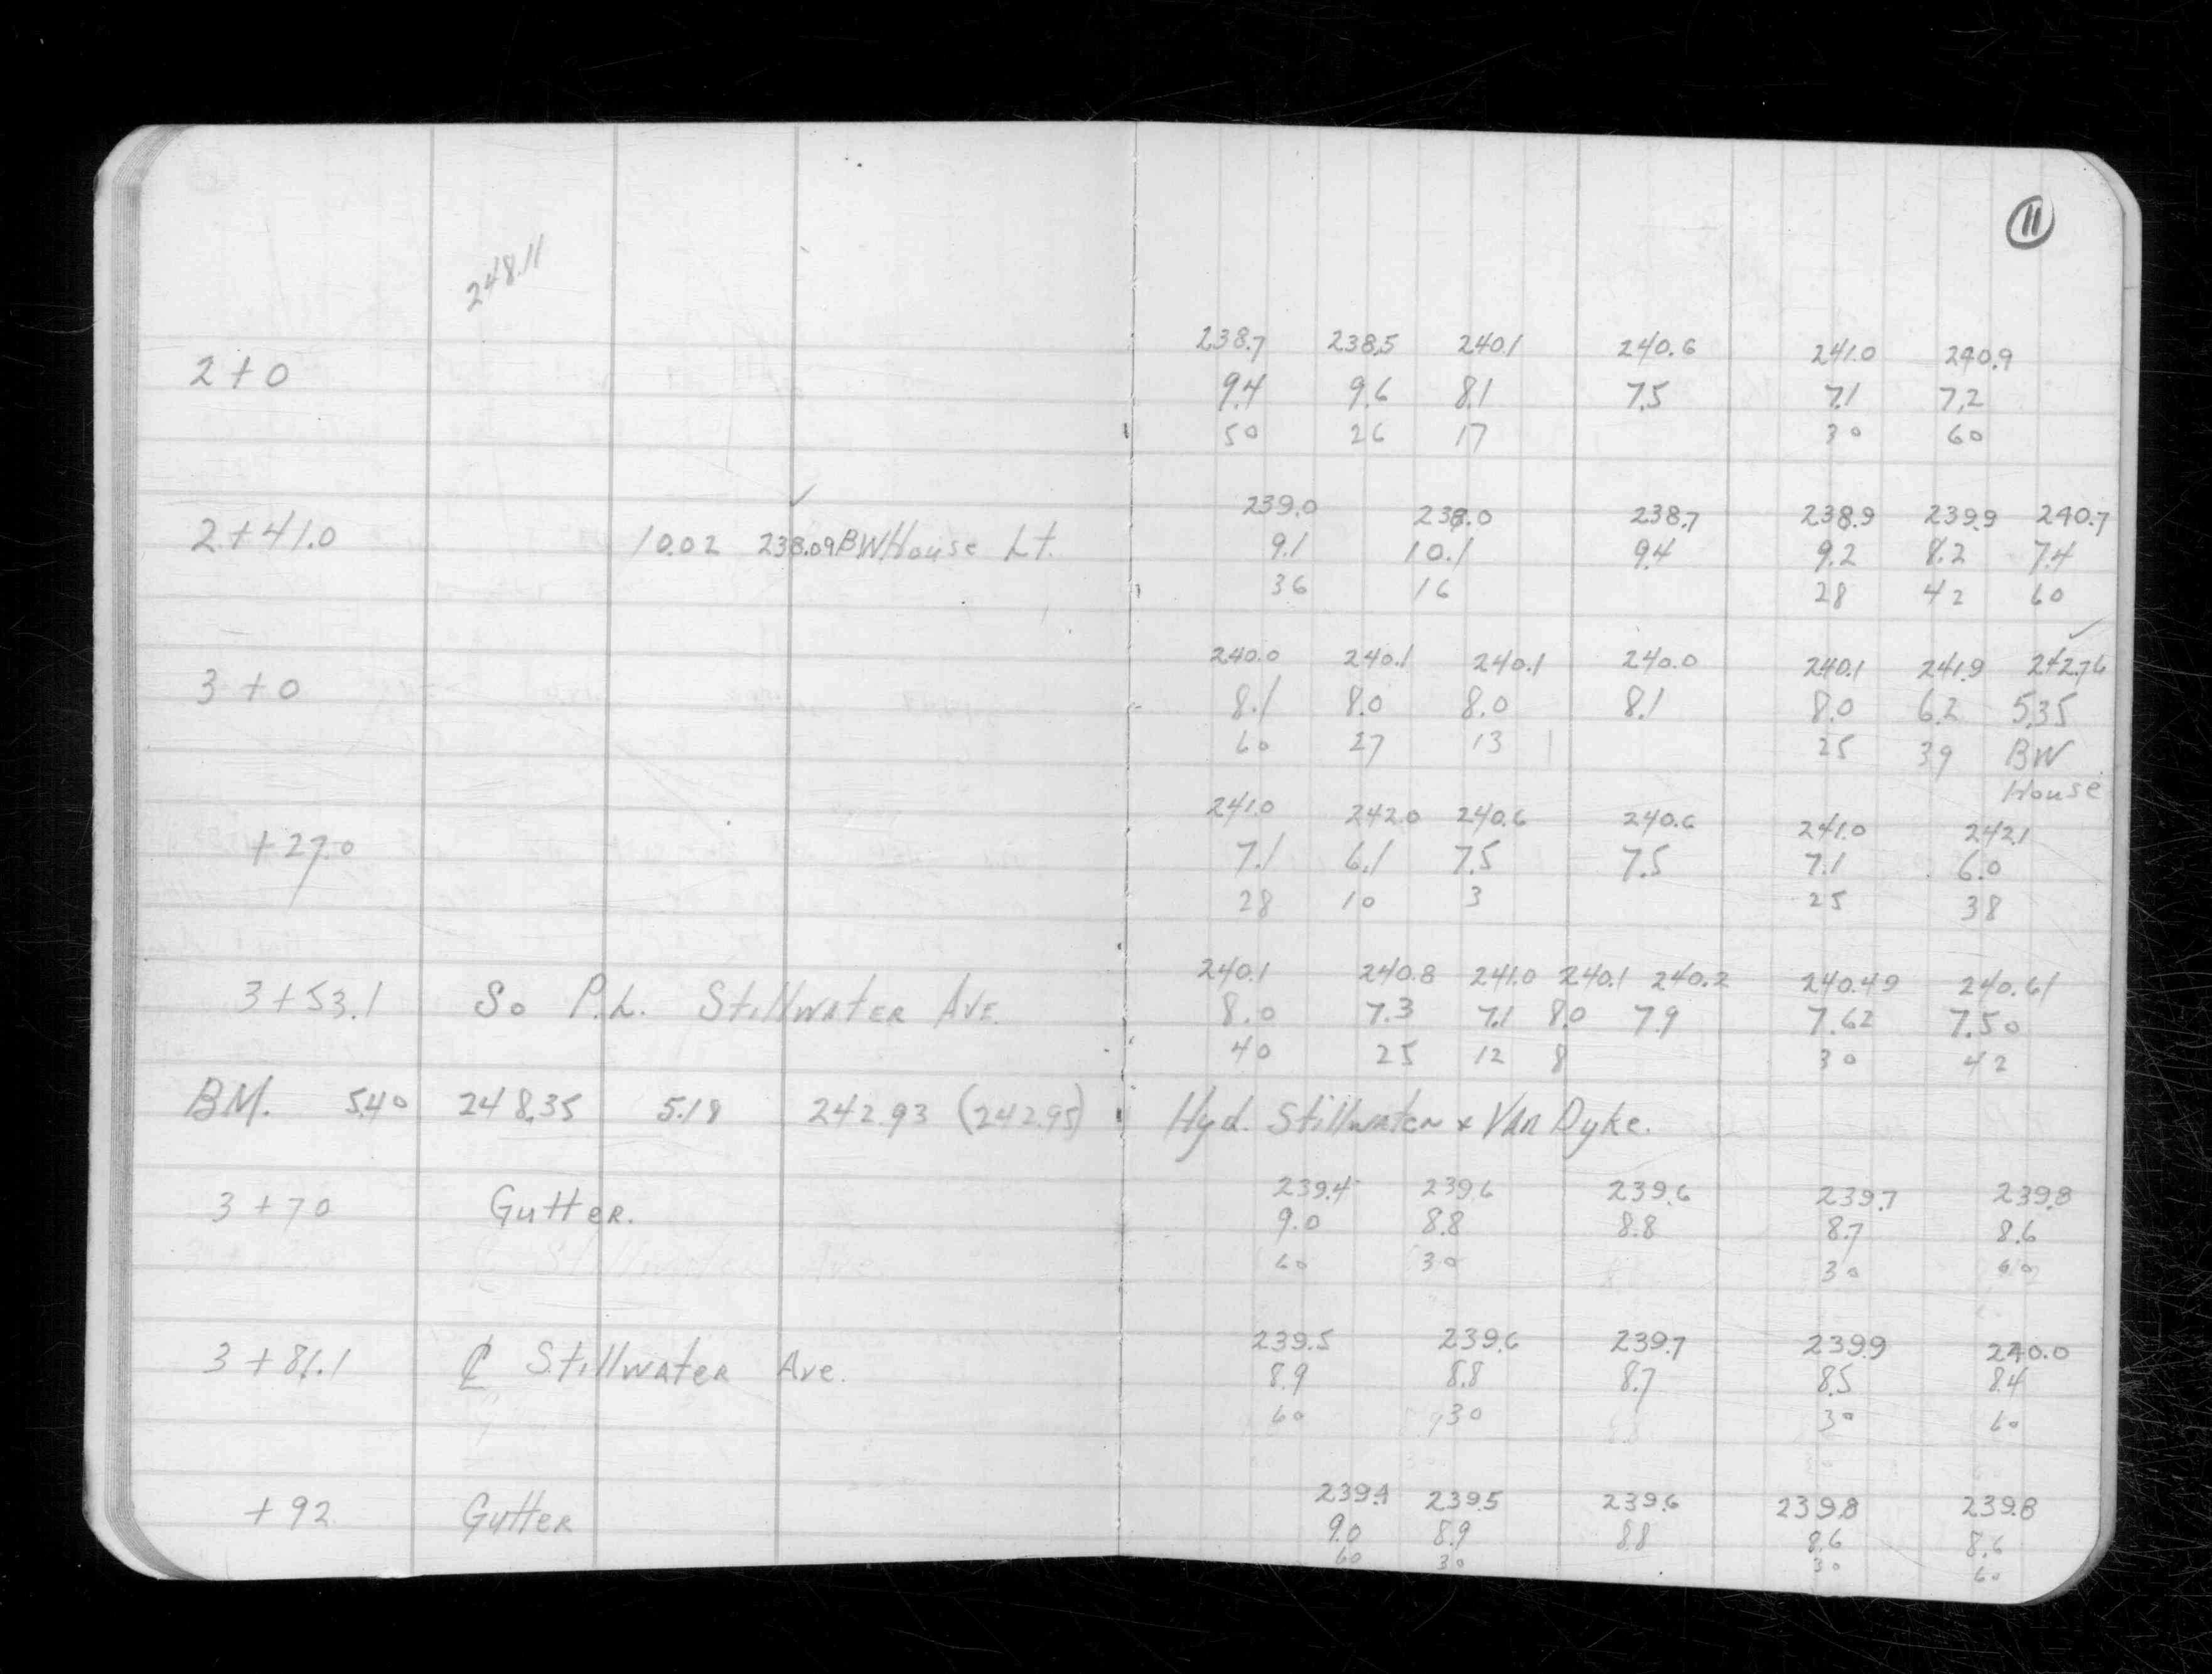 11
248.11
238.7 238.5 240.1 240.6 241.0 240.9
2+0 9.4 9.6 8.1 7.5 7.1 7.2
50 26 17 30 60
239.0 238.0 238.7 238.9 239.9 240.7
2+41.0 10.02 238.09 BW House Lt. 9.1 10.1 9.4 9.2 8.2 7.4
36 16 28 42 60
240.0 240.1 240.1 240.0 240.1 241.9 242.76
3+0 8.1 8.0 8.0 8.1 8.0 6.2 5.35
60 27 13 25 39 BW
House
241.0 242.0 240.6 240.6 241.0 242.1
+27.0 7.1 6.1 7.5 7.5 7.1 6.0
28 10 3 25 38
240.1 240.8 241.0 240.1 240.2 240.49 240.61
3+53.1 So P.L. Stillwater Ave. 8.0 7.3 7.1 8.0 7.9 7.62 7.50
40 25 12 8 30 42
BM. 5.40 248.35 5.18 242.93 (242.95) Hyd. Stillwater & Van Dyke.
239.4 239.6 239.6 239.7 239.8
3+70 Gutter. 9.0 8.8 8.8 8.7 8.6
60 30 30 60
℄ Stillwater Ave.
239.5 239.6 239.7 239.9 240.0
3+81.1 ℄ Stillwater Ave. 8.9 8.8 8.7 8.5 8.4
60 30 30 60
239.4 239.5 239.6 239.8 239.8
+92 Gutter 9.0 8.9 8.8 8.6 8.6
60 30 30 60